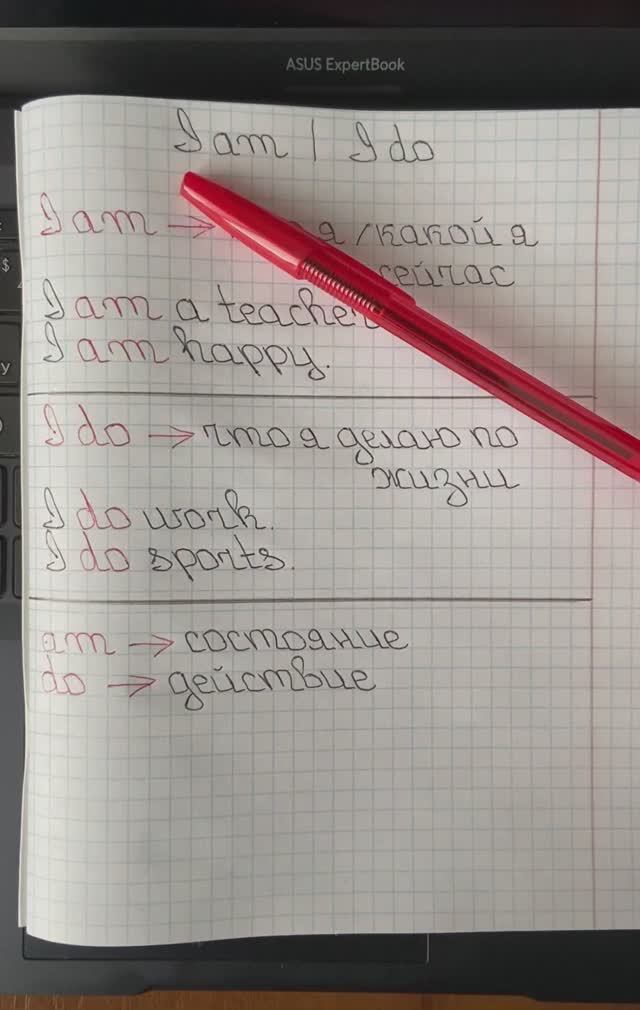 ASUS ExpertBook
I am | I do
I am → я/какой я
сейчас
I am a teacher
I am happy.
I do → что я делаю по
жизни
I do work.
I do sports.
am → состояние
do → действие